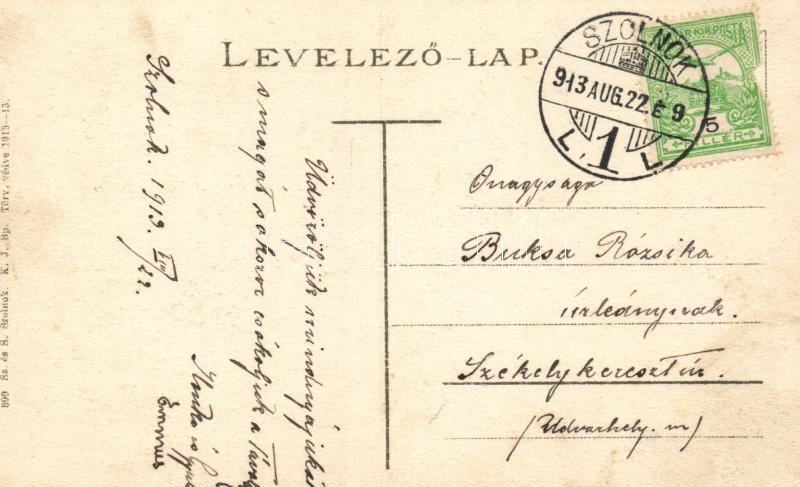 LEVELEZŐ-LAP.
SZOLNOK
913 AUG. 22. E 9
L. 1 L
MAGYAR KIR. POSTA
5
FILLÉR
Szolnok. 1913. VIII/22.
Üdvözöljük mindnyájukat
s magát sokszor csókoljuk a
Őnagysága
Buksa Rózsika
úrleánynak.
Székelykeresztúr.
(Udvarhely. m)
800 Sz. és S. Szolnok. K. J. Bp. Törv. védve 1913—15.